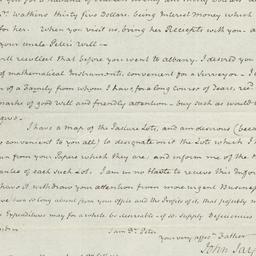 Mr. Watkins thirty five Dollars, being Interest Money which
for her. When you visit us, bring her Receipts with you — a
your uncle Peters Will —
will recollect that before you went to albany, I desired you
of mathematical Instruments, convenient for a Surveyor — I
of a Family from whom I have for a long course of Years, rec.d
marks of good will and friendly attention — buy such as would
I have a map of the Lots, and am desirous (beca
convenient to you all) to designate on it the Lots which I
from your Papers which they are, and inform me of the N
of each such Lot. I am in no Haste to recieve this Infor
withdraw your attention from more urgent Business
long absent from your office and the Profits of it, that possibly
Expenditures may for a while be desirable — to supply Deficiencies
I am Dr. Peter
your very affec.te Father
John Jay